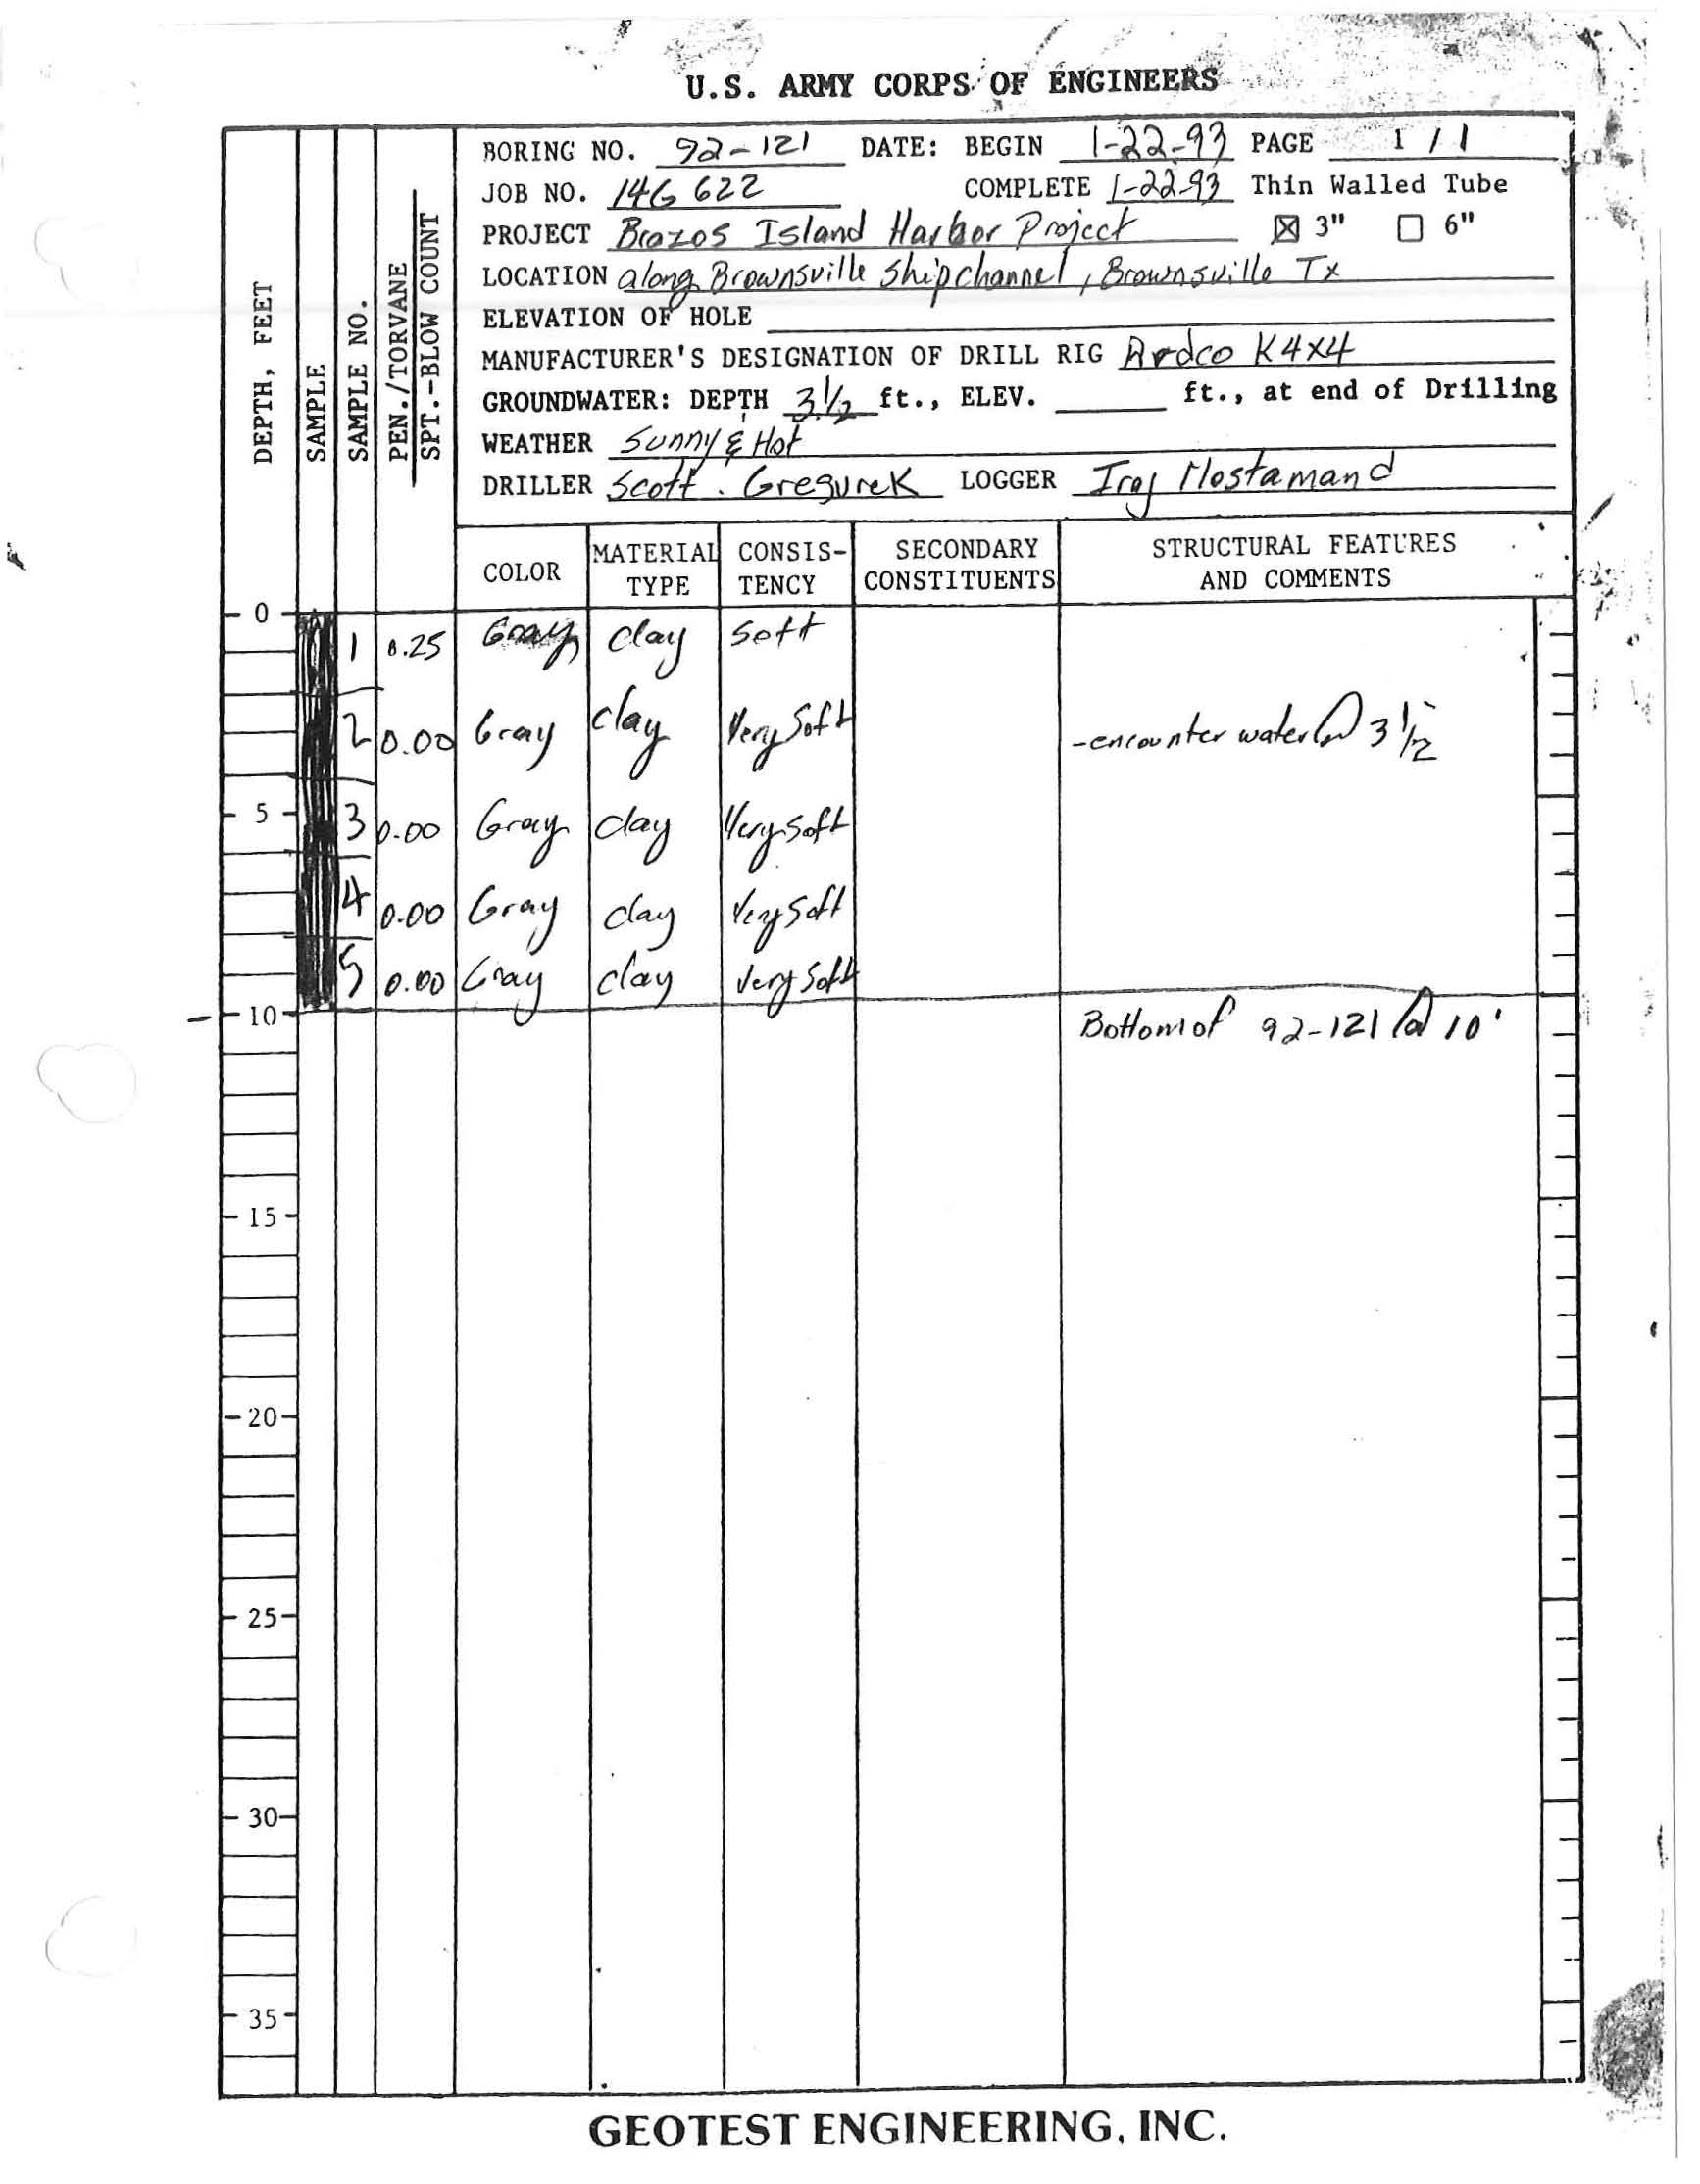 U.S. ARMY CORPS OF ENGINEERS
BORING NO. 92-121 DATE: BEGIN 1-22-93 PAGE 1 / 1
JOB NO. 14G 622 COMPLETE 1-22-93 Thin Walled Tube
PROJECT Brazos Island Harbor Project ☒ 3" ☐ 6"
LOCATION along Brownsville Shipchannel, Brownsville Tx
ELEVATION OF HOLE
MANUFACTURER'S DESIGNATION OF DRILL RIG Ardco K4x4
GROUNDWATER: DEPTH 3 1/2 ft., ELEV. ft., at end of Drilling
WEATHER Sunny & Hot
DRILLER Scott. Gregurek LOGGER Iraj Mostamand
DEPTH, FEET
SAMPLE
SAMPLE NO.
PEN./TORVANE
SPT.-BLOW COUNT
COLOR MATERIAL TYPE CONSIS-TENCY SECONDARY CONSTITUENTS STRUCTURAL FEATURES AND COMMENTS
0
1 0.25 Gray clay Soft
2 0.00 Gray clay Very Soft -encounter water @ 3 1/2
5
3 0.00 Gray clay Very Soft
4 0.00 Gray clay Very Soft
5 0.00 Gray clay Very Soft
10
Bottom of 92-121 @ 10'
15
20
25
30
35
GEOTEST ENGINEERING, INC.